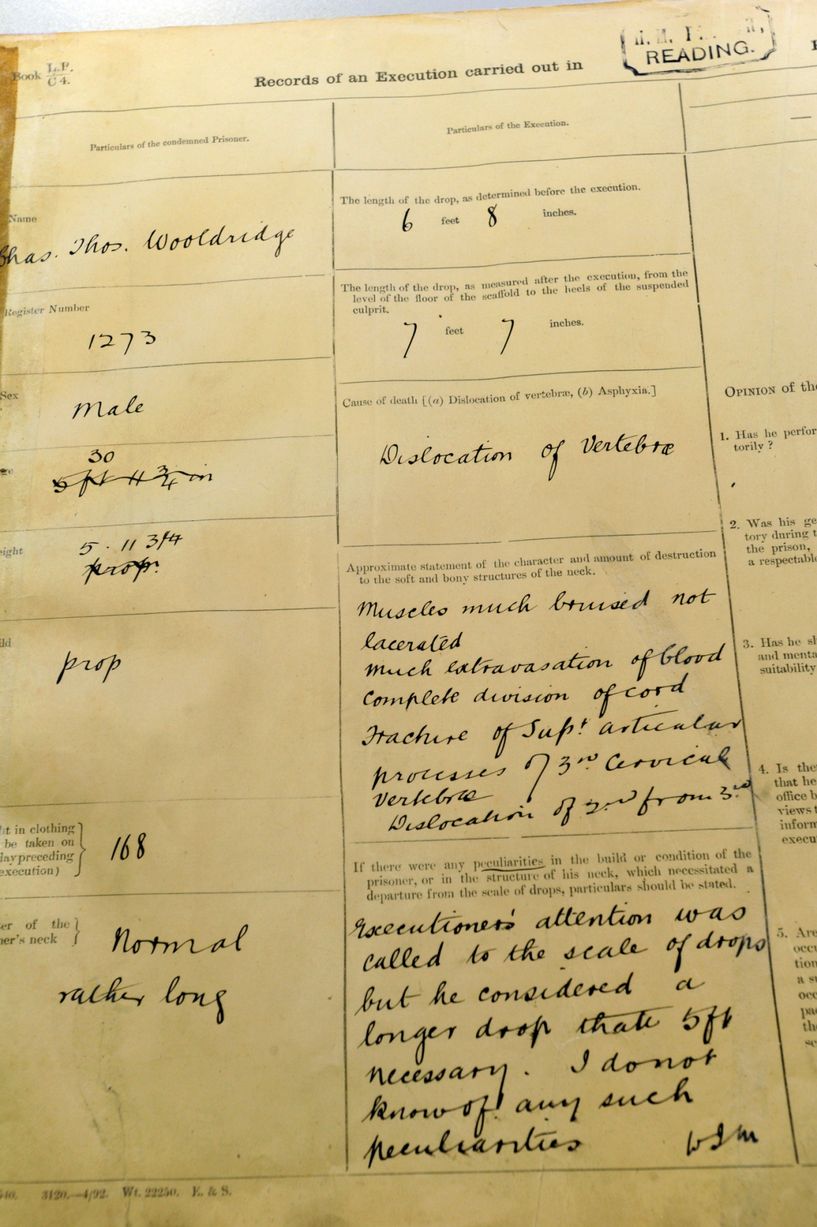 Book L.P. C 4.
Records of an Execution carried out in
H. M. P
READING.
Particulars of the condemned Prisoner.
Name
Chas. Thos. Wooldridge
Register Number
1273
Sex
Male
30
5 ft 11 3/4 in
eight
5 . 11 3/4
prop.
ild
prop
ht in clothing
be taken on
day preceding
execution)
168
er of the
ner's neck
Normal
rather long
Particulars of the Execution.
The length of the drop, as determined before the execution.
6 feet 8 inches.
The length of the drop, as measured after the execution, from the
level of the floor of the scaffold to the heels of the suspended
culprit.
7 feet 7 inches.
Cause of death [(a) Dislocation of vertebræ, (b) Asphyxia.]
Dislocation of Vertebræ
Approximate statement of the character and amount of destruction
to the soft and bony structures of the neck.
Muscles much bruised not
lacerated
Much extravasation of blood
Complete division of cord
Fracture of Supr articular
processes of 3rd Cervical
Vertebræ
Dislocation of 2nd from 3rd
If there were any peculiarities in the build or condition of the
prisoner, or in the structure of his neck, which necessitated a
departure from the scale of drops, particulars should be stated.
Executioners' attention was
called to the scale of drops
but he considered a
longer drop than 5ft
necessary. I do not
know of any such
peculiarities
OPINION of the
1. Has he perfor
torily ?
2. Was his ge
tory during t
the prison,
a respectabl
3. Has he sh
and menta
suitability
4. Is the
that he
office b
views t
inform
execu
5. Are
occu
tion
a s
occ
pa
the
se
3120.—4/92. Wt. 22250. E. & S.